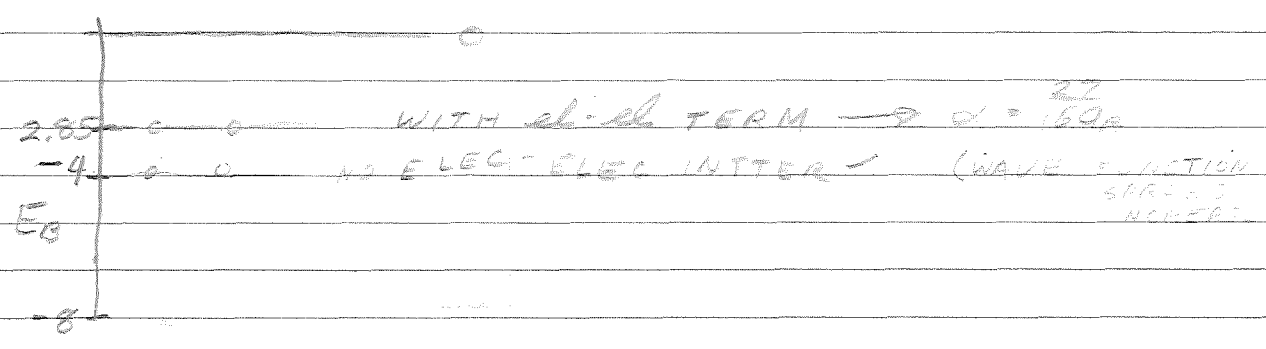 0
2.85 WITH el-el TERM → α = 27/16a₀
-4 NO ELEC-ELEC INTTER - (WAVE FUNCTION
E_B
-8